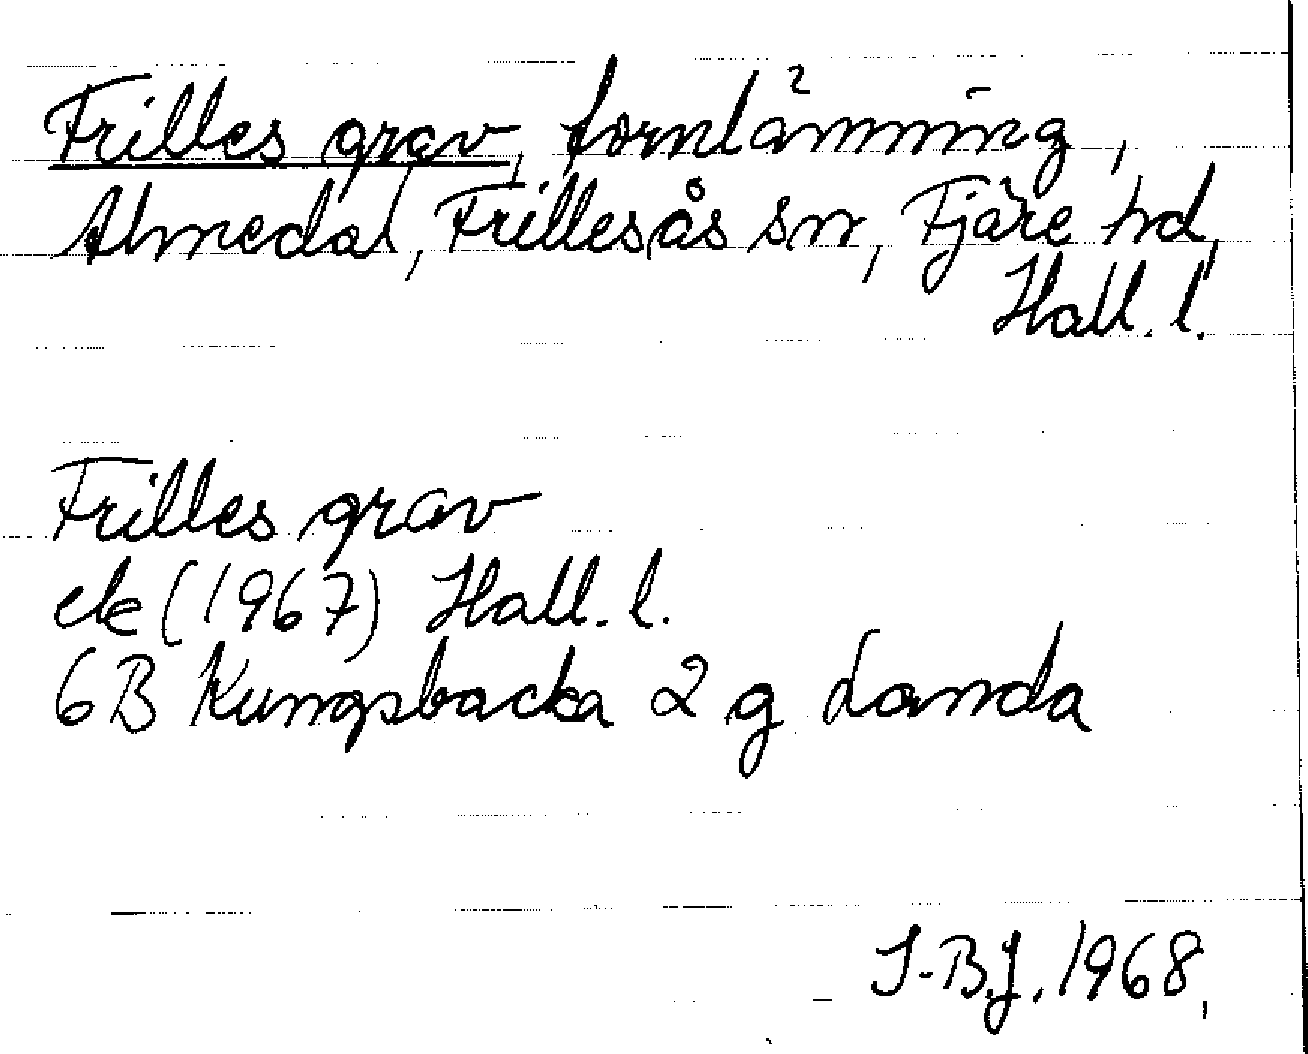 Frilles grav, fornlämning,
Almedal, Frillesås sn, Fjäre hd,
Hall. l.
Frilles grav
ek (1967) Hall. l.
6B Kungsbacka 2 g Landa
I-B.J. 1968.